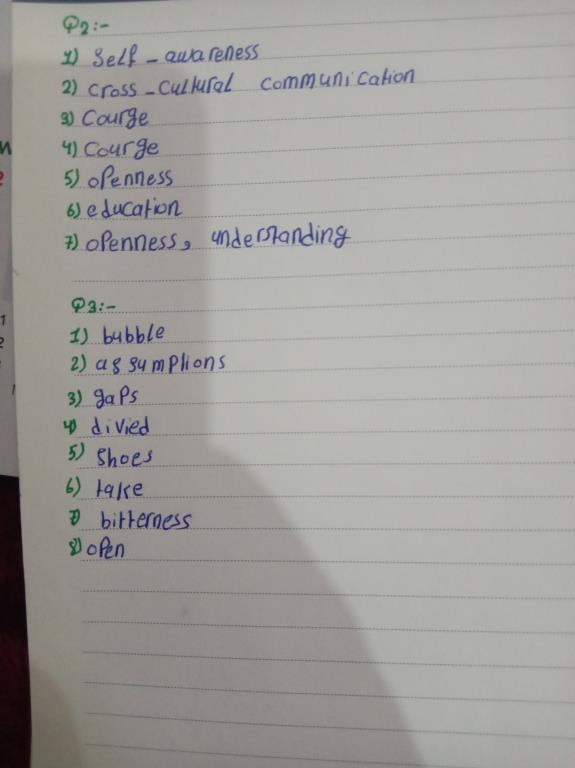 Q2:-
1) Self-awareness
2) cross-cultural communication
3) Courge
4) Courge
5) openness
6) education
7) openness, understanding
Q3:-
1) bubble
2) assumptions
3) gaps
4) divied
5) Shoes
6) take
7) bitterness
8) open